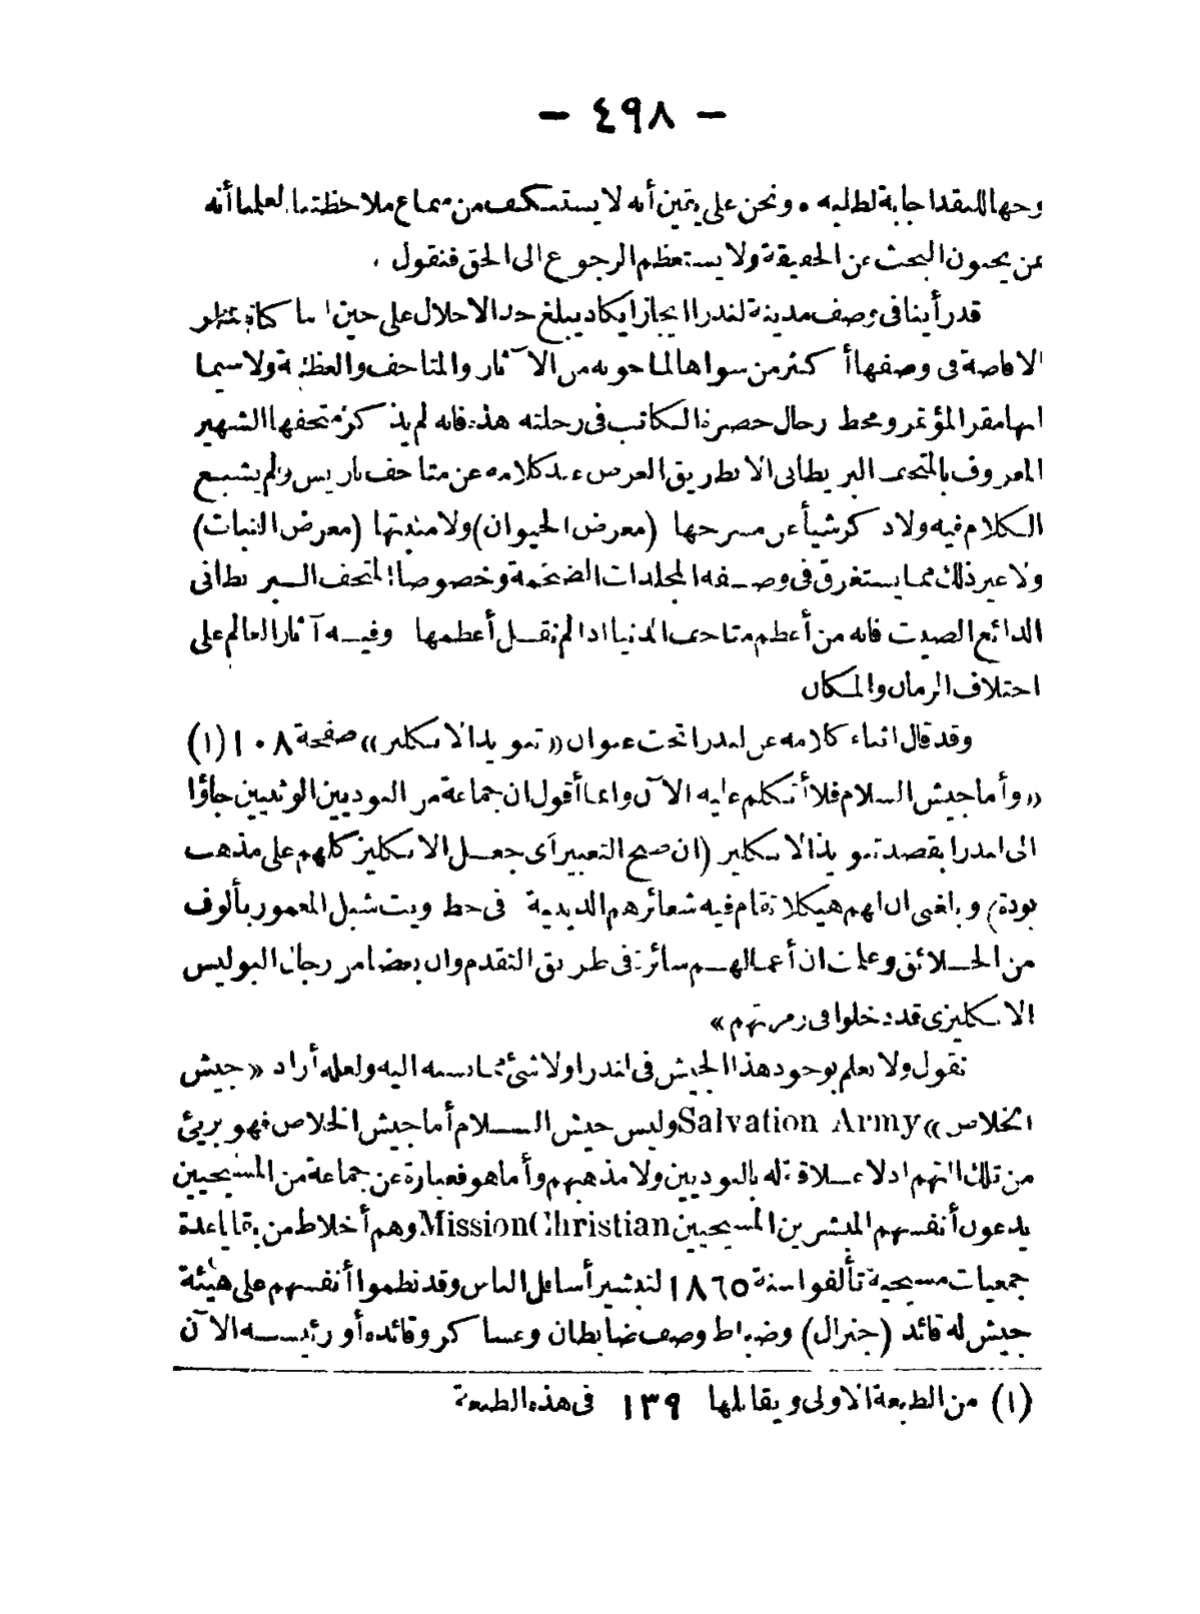 — ٤٩٨ —
وجها للنقد اجابة لطلبه . ونحن على يقين أنه لا يستنكف من سماع ملاحظتنا لعلمنا أنه
ممن يحبون البحث عن الحقيقة ولا يستعظم الرجوع الى الحق فنقول .
قد رأينا في وصف مدينة لندرا ايجازا يكاد يبلغ حد الاخلال على حين اننا كنا ننتظر
الافاضة في وصفها أكثر من سواها لما حوته من الآثار والمتاحف والعظمة ولا سيما
انها مقر المؤتمر ومحط رحال حضرة الكاتب في رحلته هذه فانه لم يذكر متحفها الشهير
المعروف بالمتحف البريطاني الا بطريق العرض عند كلامه عن متاحف باريس ولم يشبع
الكلام فيه ولا ذكر شيأ عن مسرحها (معرض الحيوان) ولا منبتها (معرض النبات)
ولا غير ذلك مما يستغرق في وصفه المجلدات الضخمة وخصوصا المتحف البريطاني
الذائع الصيت فانه من أعظم متاحف الدنيا اذا لم نقل أعظمها وفيه آثار العالم على
اختلاف الزمان والمكان
وقد قال اثناء كلامه عن لندرا تحت عنوان «تبويذ الانكليز» صفحة ١٠٨ (١)
«وأما جيش السلام فلا أتكلم عليه الآن وانما أقول ان جماعة من البوذيين الوثنيين جاؤا
الى لندرا بقصد تبويذ الانكليز (ان صح التعبير أى جعل الانكليز كلهم على مذهب
بوذة) وبلغنى ان لهم هيكلا تقام فيه شعائرهم الدينية في خط ويت شبل المعمور بألوف
من الخلائق وعلمت ان أعمالهم سائرة في طريق التقدم وان بعضا من رجال البوليس
الانكليزى قد دخلوا في زمرتهم»
نقول ولا نعلم بوجود هذا الجيش في لندرا ولا شئ مما نسبه اليه ولعله أراد «جيش
الخلاص» Salvation Army وليس جيش السلام أما جيش الخلاص فهو برئ
من تلك التهم اذ لا علاقة له بالبوذيين ولا مذهبهم وأما هو فعبارة عن جماعة من المسيحيين
يدعون أنفسهم المبشرين المسيحيين Mission Christian وهم أخلاط من بقايا عدة
جمعيات مسيحية تألفوا سنة ١٨٦٥ لتبشير أسافل الناس وقد نظموا أنفسهم على هيئة
جيش له قائد (جنرال) وضباط وصف ضابطان وعساكر وقائده أو رئيسه الآن
(١) من الطبعة الاولى ويقابلها ١٣٩ في هذه الطبعة